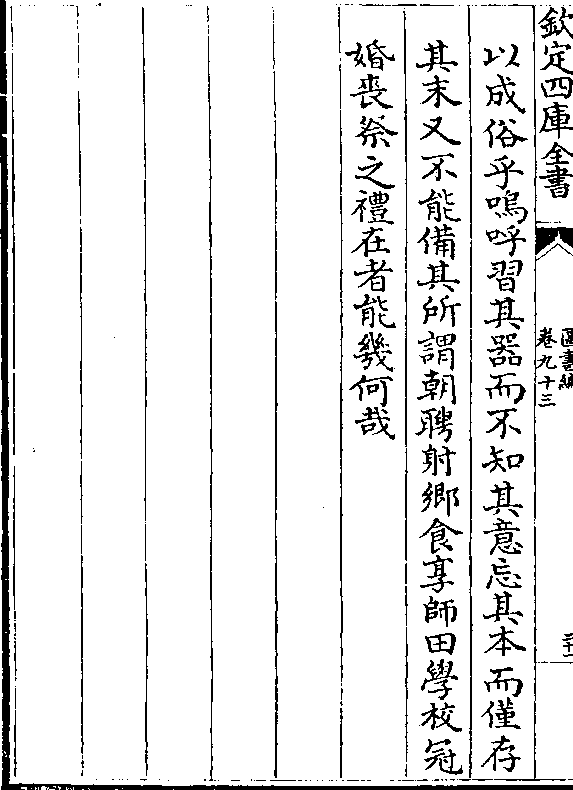 欽定四庫全書
圖書編
卷九十三
二十一
以成俗乎嗚呼習其器而不知其意忘其本而僅存
其末又不能備其所謂朝聘射鄉食享師田學校冠
婚喪祭之禮在者能幾何哉